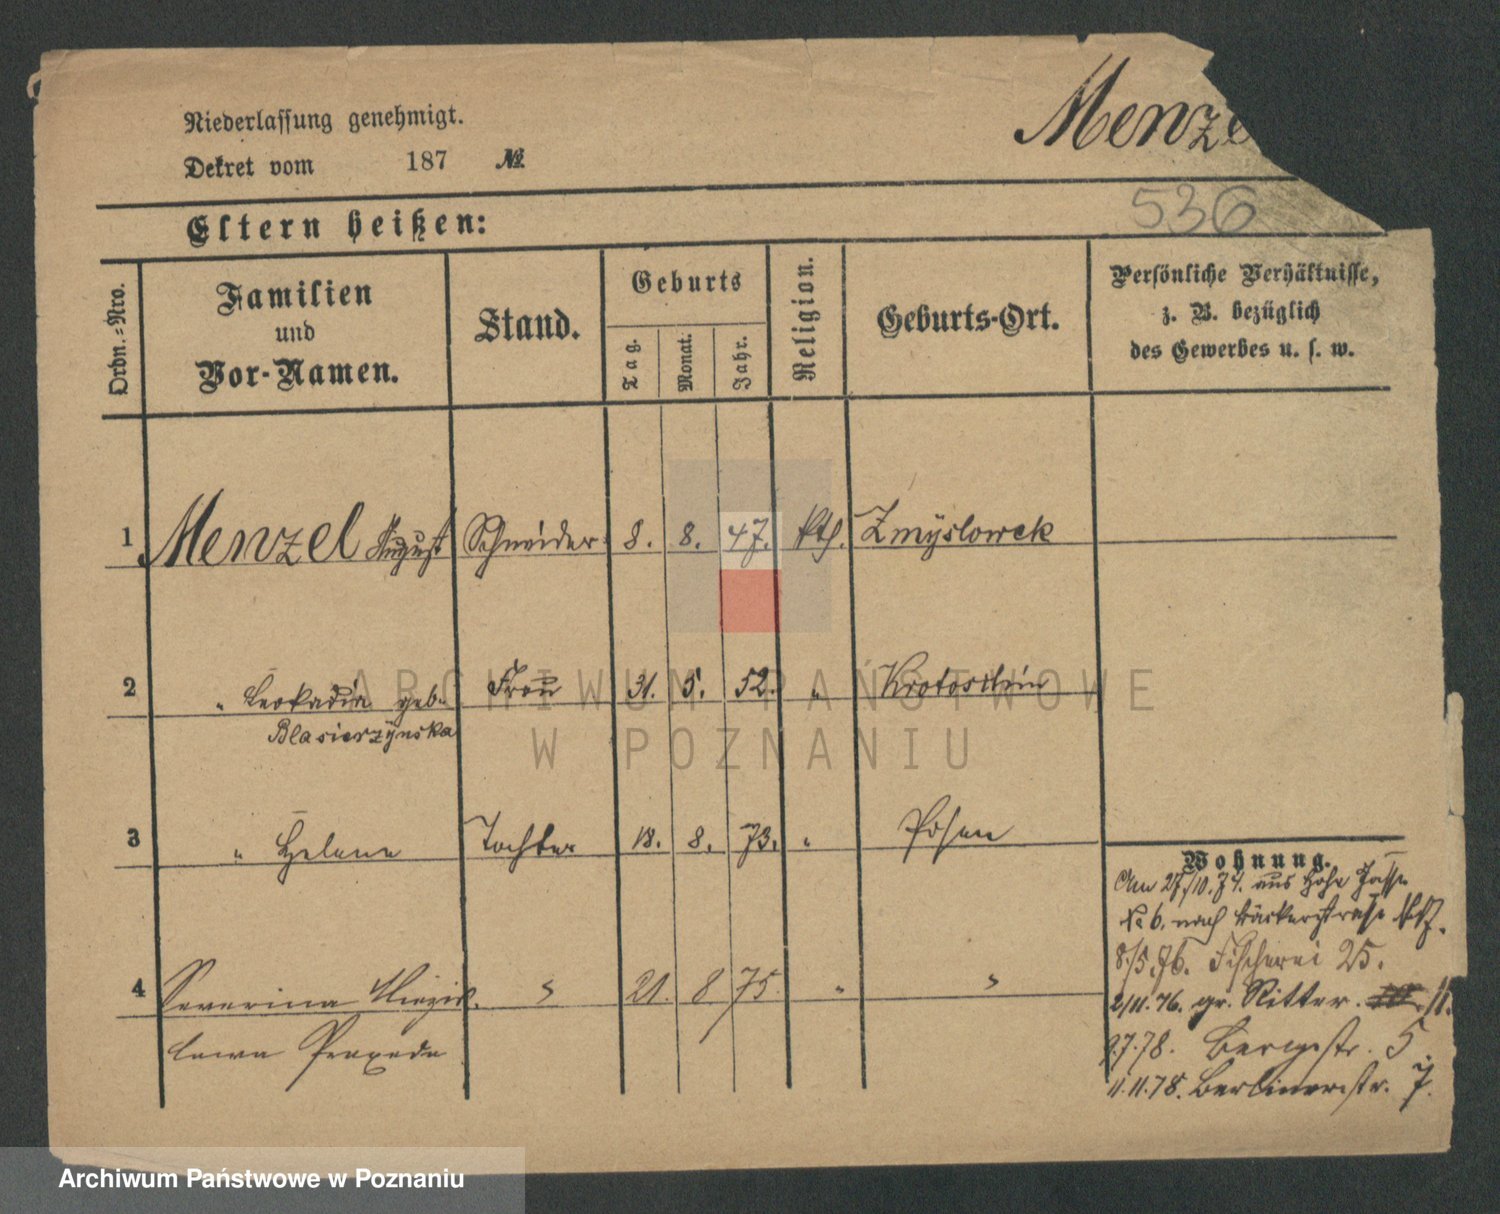 Niederlassung genehmigt.
Dekret vom 187 №
Menze
536
Eltern heißen:
Ordn.-Nro.
Familien
und
Vor-Namen.
Stand.
Geburts
Tag.
Monat.
Jahr.
Religion.
Geburts-Ort.
Persönliche Verhältnisse,
z. B. bezüglich
des Gewerbes u. s. w.
1 Menzel August Schneider 8. 8. 47. kth. Zmyslowek
2 " Leokadia geb. Frau 31. 5. 52. " Krotoschin
Blasierzynska
3 " Helene Tochter 18. 8. 73. " Posen
4 Severina Miezis- " 21. 8. 75. " "
lawa Praxeda
Wohnung.
Am 27./10.74. aus Hohe Gasse
No 6. nach Bäckerstraße
8./5.76. Fischerei 25.
2/11.76. gr. Ritter. 11.
7.78. Bergstr. 5.
11.11.78. Berlinerstr. 7.
ARCHIWUM PAŃSTWOWE
W POZNANIU
Archiwum Państwowe w Poznaniu